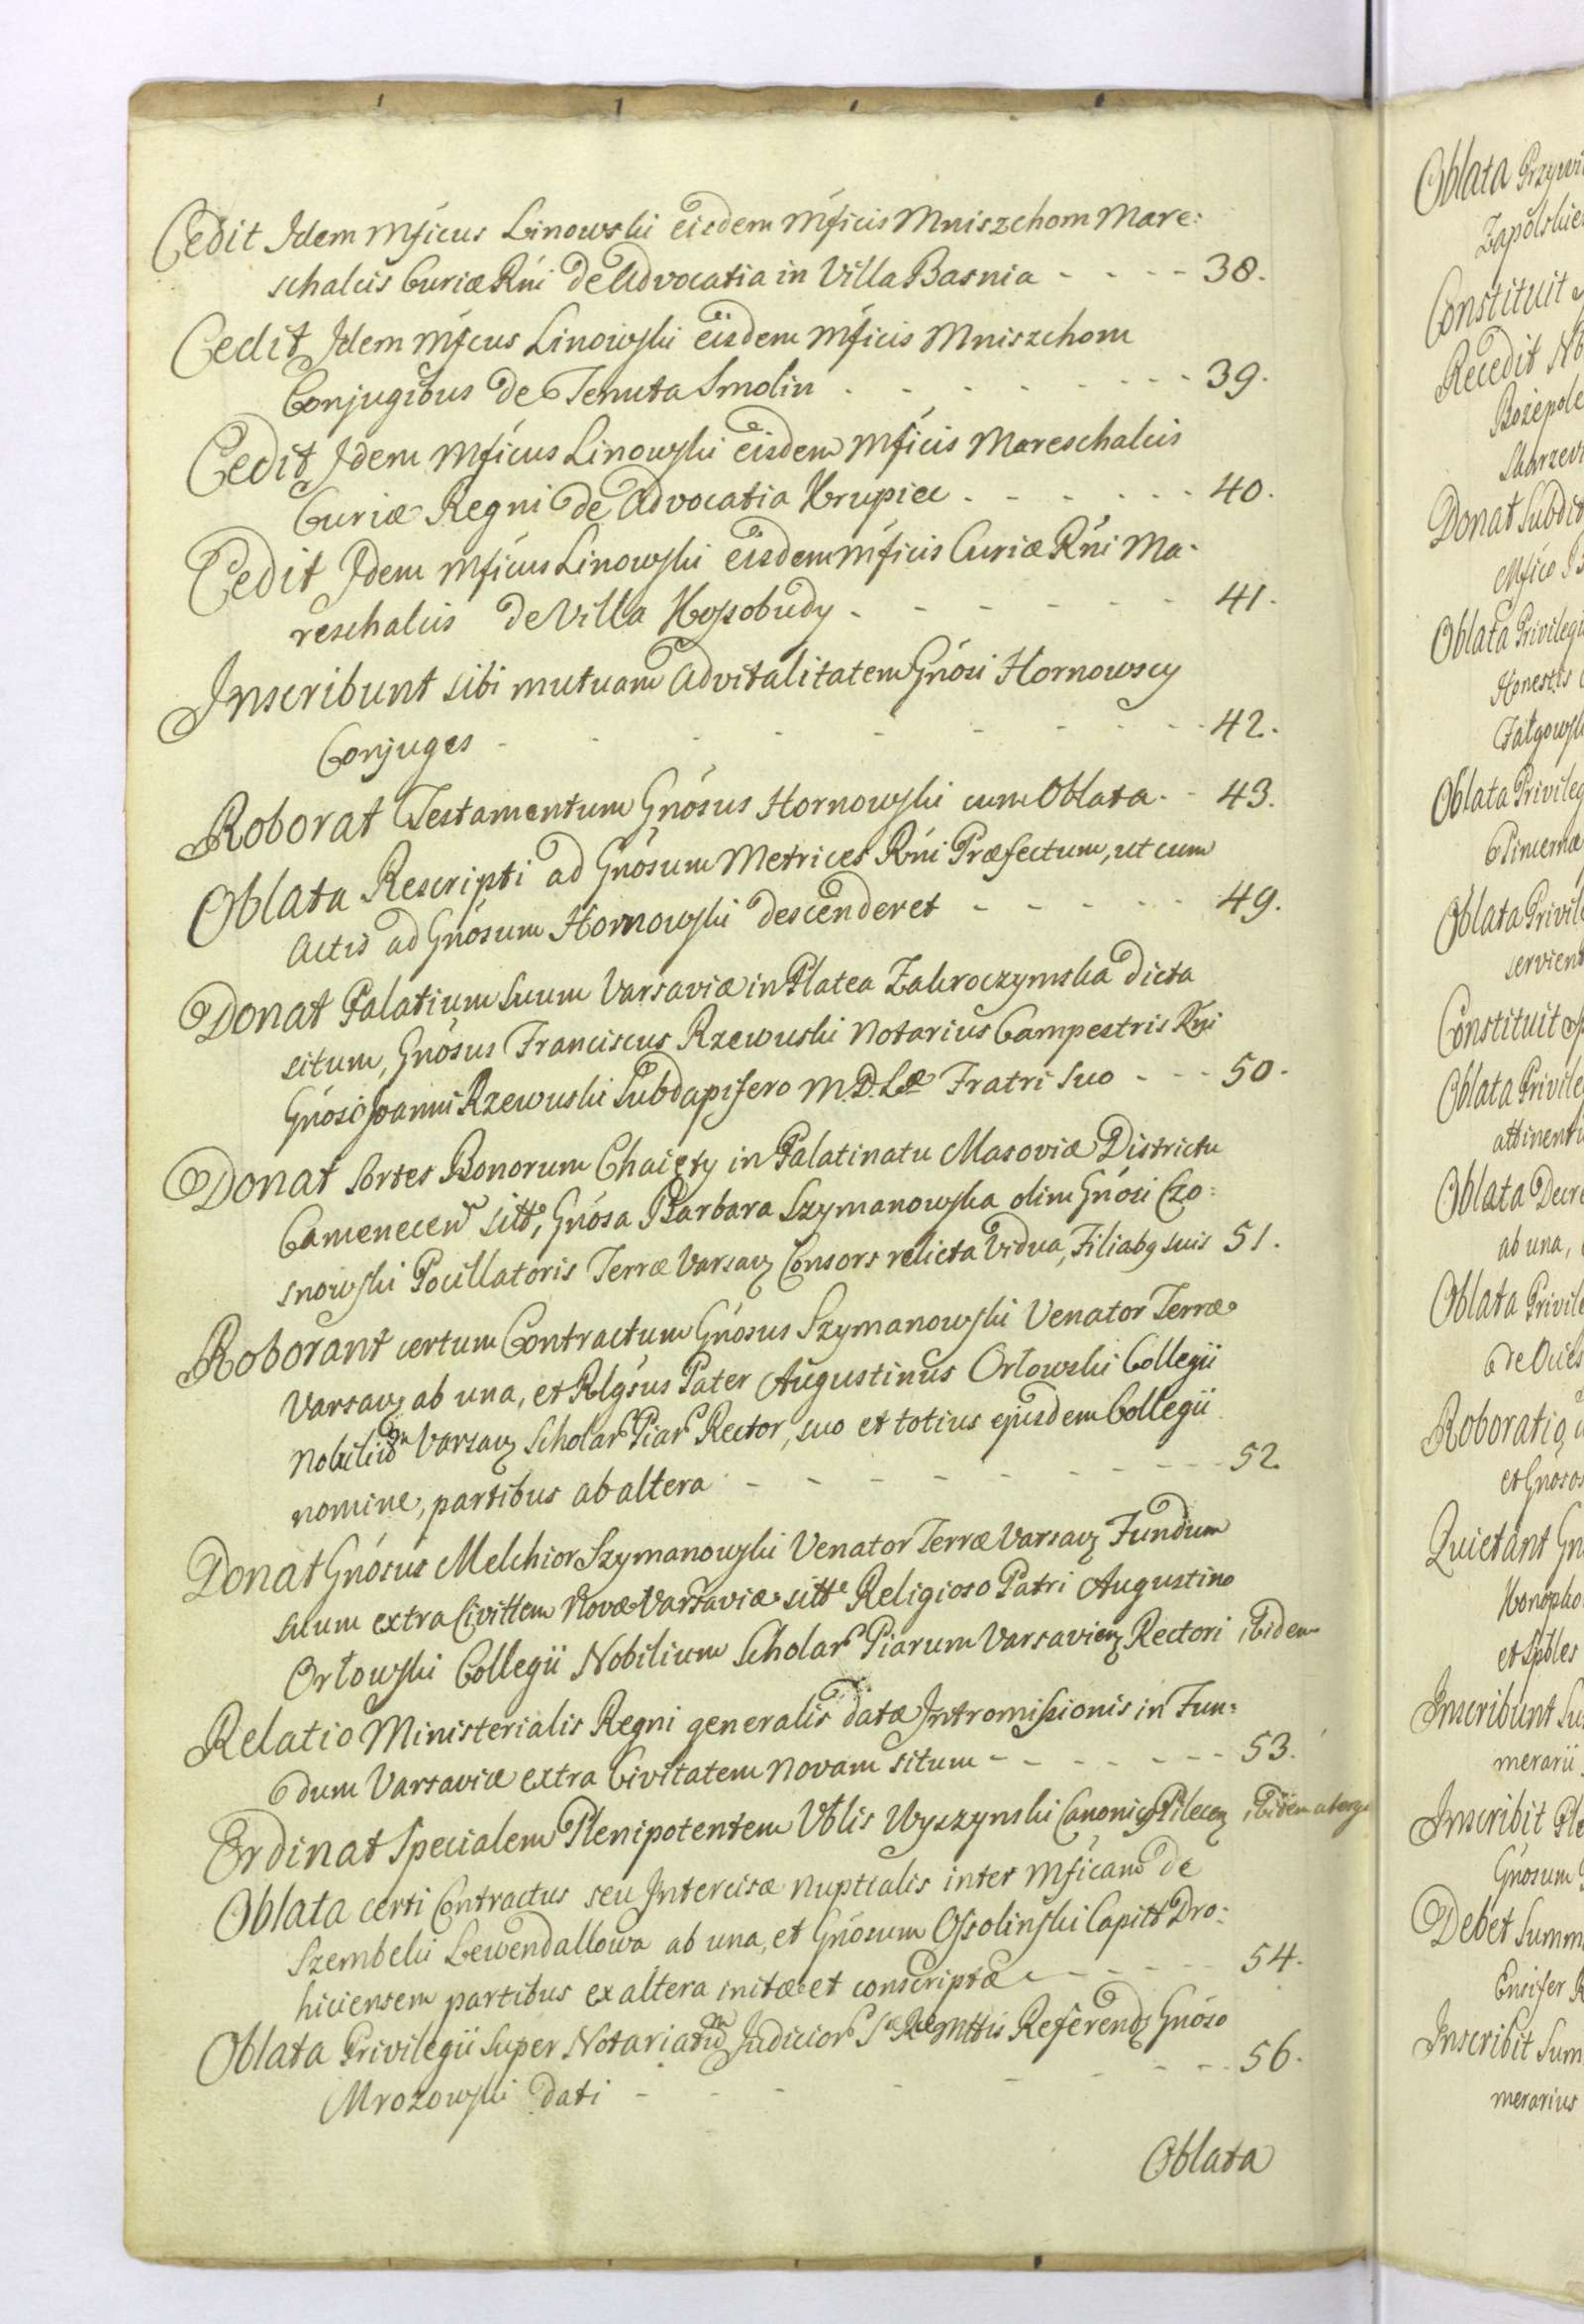 Cedit Idem Mficus Linowski eisdem Mficis Mniszchom Mare:
schalcis Curiæ Rni de Advocatia in Villa Basnia - - - - 38.
Cedit Idem Mficus Linowski eisdem Mficis Mniszchom
Conjugibus de Tenuta Smolin - - - - - - - 39.
Cedit Idem Mficus Linowski eisdem Mficis Mareschalcis
Curiæ Regni de Advocatia Krupiec - - - - - - 40.
Cedit Idem Mficus Linowski eisdem Mficis Curiæ Rni Ma-
reschalcis de Villa Kossobudy - - - - - - 41.
Inscribunt sibi mutuam advitalitatem Gnosi Hornowscy
Conjuges - - - - - - - - 42.
Roborat Testamentum Gnosus Hornowski cum Oblata - - 43.
Oblata Rescripti ad Gnosum Metrices Rni Præfectum, ut cum
Actis ad Gnosum Hornowski descenderet - - - - - 49.
Donat Palatium suum Varsaviæ in Platea Zakroczymska dicta
situm, Gnosus Franciscus Rzewuski Notarius Campestris Rni
Gnoso Joanni Rzewuski Subdapifero M.D.Læ Fratri suo - - - 50.
Donat sortes Bonorum Chaięty in Palatinatu Masoviæ Districtu
Camenecen sitt, Gnosa Barbara Szymanowska olim Gnosi Czo:
snowski Pocillatoris Terræ Varsav Consors relicta Vidua, Filiabq suis 51.
Roborant certum Contractum Gnosus Szymanowski Venator Terræ
Varsav ab una, et Rlgsus Pater Augustinus Orłowski Collegii
Nobilium Varsav Scholar Piar Rector, suo et totius ejusdem Collegii
nomine, partibus ab altera - - - - - - - - 52
Donat Gnosus Melchior Szymanowski Venator Terræ Varsav Fundum
suum extra Civittem Novæ Varsaviæ sitt Religioso Patri Augustino
Orłowski Collegii Nobilium Scholar Piarum Varsavien Rectori ibidem
Relatio Ministerialis Regni generalis datæ Intromissionis in Fun:
dum Varsaviæ extra Civitatem Novam situm - - - - - - - 53.
Ordinat Specialem Plenipotentem Vblis Wyczynski Canonicq Pilecen ibidem a tergo
Oblata certi Contractus seu Intercisæ nuptialis inter Mficam de
Szembeki Lewendallowa ab una, et Gnosum Ossolinski Capitt Dro:
hiciensem partibus ex altera initæ et conscriptæ - - - - - 54.
Oblata Privilegii super Notariatum Judicior Sæ Ræ Mttis Referend Gnoso
Mrozowski dati - - - - - - - 56.
Oblata
Oblata
Constituit
Recedit
Donat
Oblata
Oblata
Oblata
Constituit
Oblata
Oblata
ab una,
Oblata
Roboratio
Quietant
Inscribunt
merarii
Inscribit
Gnosum
Debet
Ensifer
Inscribit
merarius